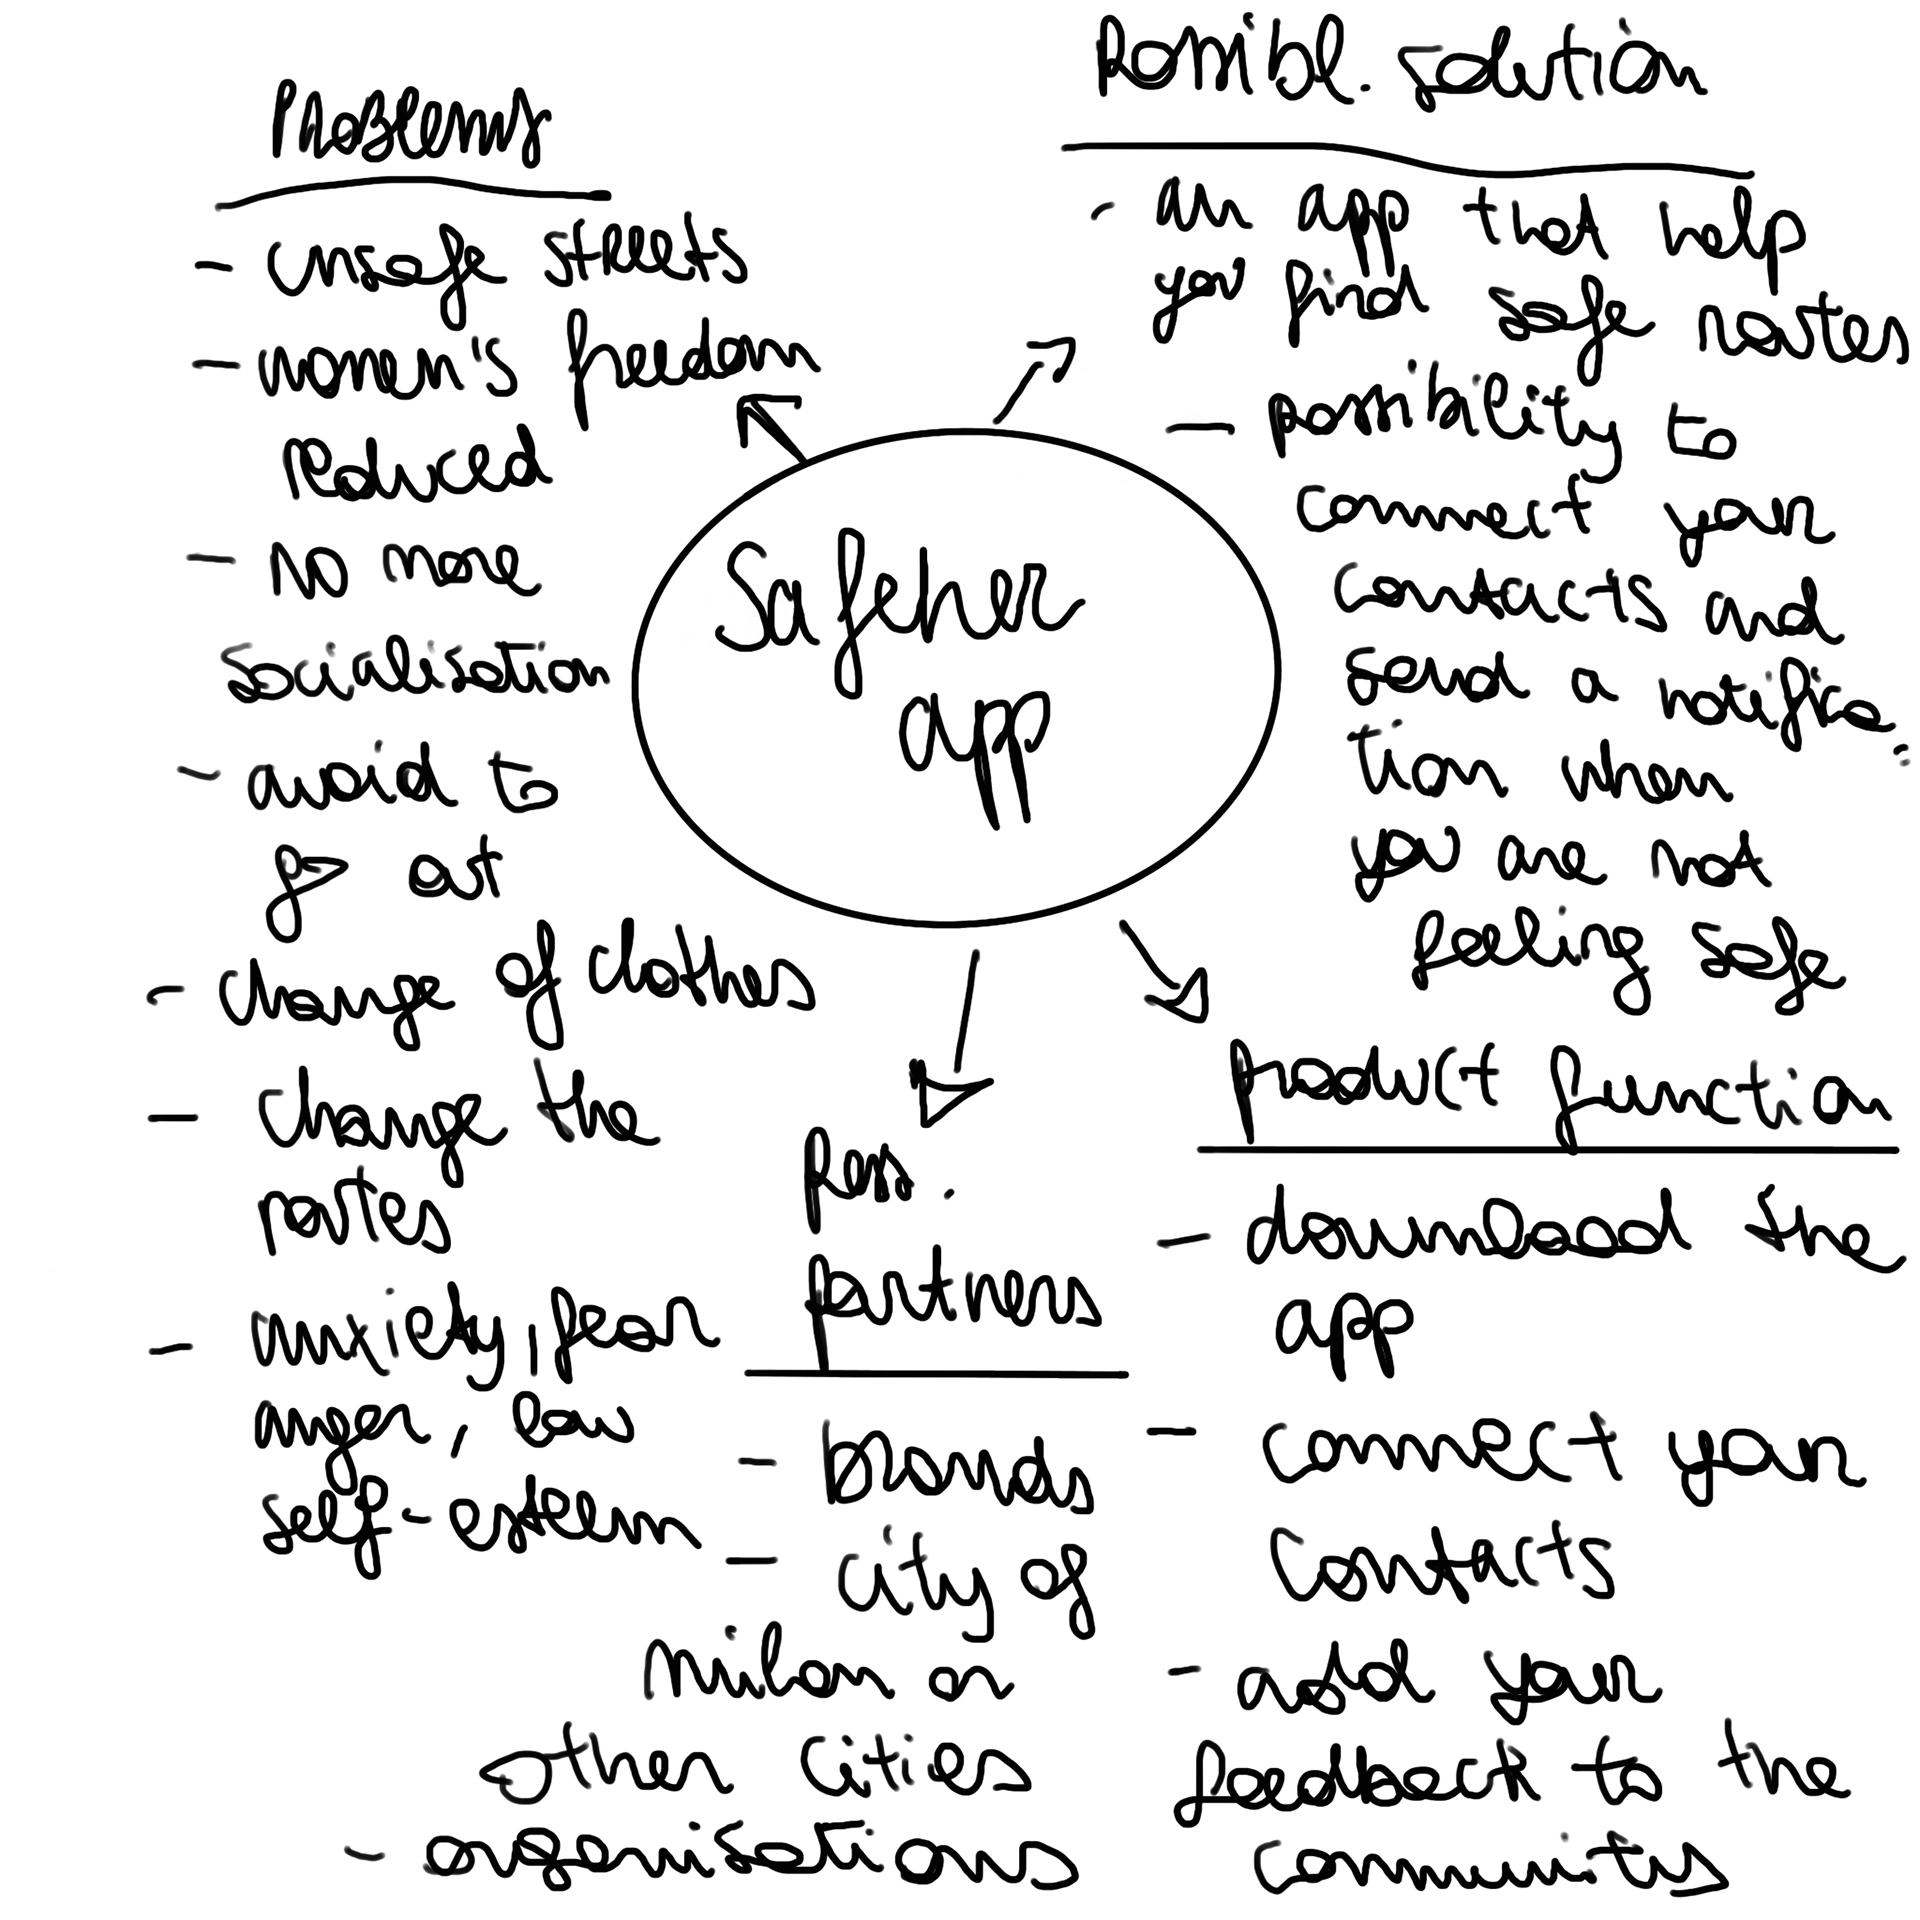 Problems
- unsafe streets
- women's freedom
reduced
- No more
socialisation
- avoid to
go out
- change of clothes
- change the
routes
- anxiety, fear
anger, low
self-esteem
Safeher
app
Possibl. solution
- an app that help
you find safe routes
- possibility to
connect your
contacts and
send a notifica-
tion when
you are not
feeling safe
Poss.
Partners
- brands
- city of
milan or
other cities
- organisations
Product function
- download the
app
- connect your
contacts
- add your
feedback to the
community